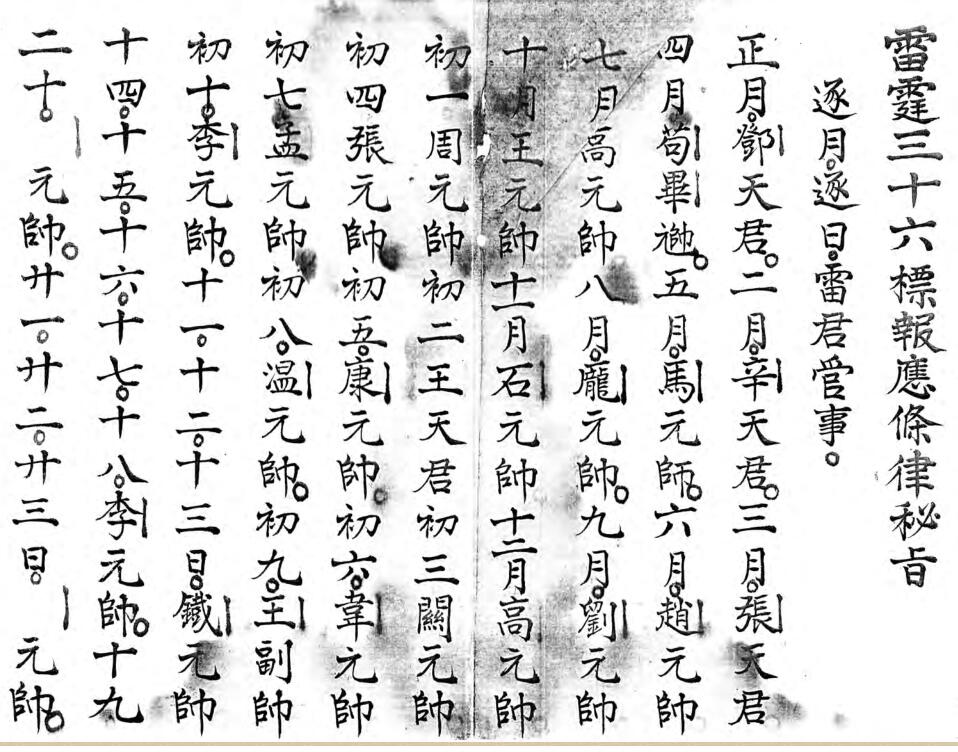 雷霆三十六標報應條律秘旨
逐月。逐日。雷君管事。
正月。鄧天君。二月。辛天君。三月。張天君
四月。苟畢𨑹。五月。馬元帥。六月。趙元帥
七月高元帥八月。龐元帥。九月。劉元帥
十月王元帥十一月石元帥十二月高元帥
初一周元帥初二王天君初三關元帥
初四張元帥初五。康元帥。初六。韋元帥
初七孟元帥初八。温元帥。初九。王副帥
初十。李元帥。十一。十二。十三日。鐵元帥
十四。十五。十六。十七。十八。李元帥。十九
二十。元帥。廿一。廿二。廿三日。元帥。